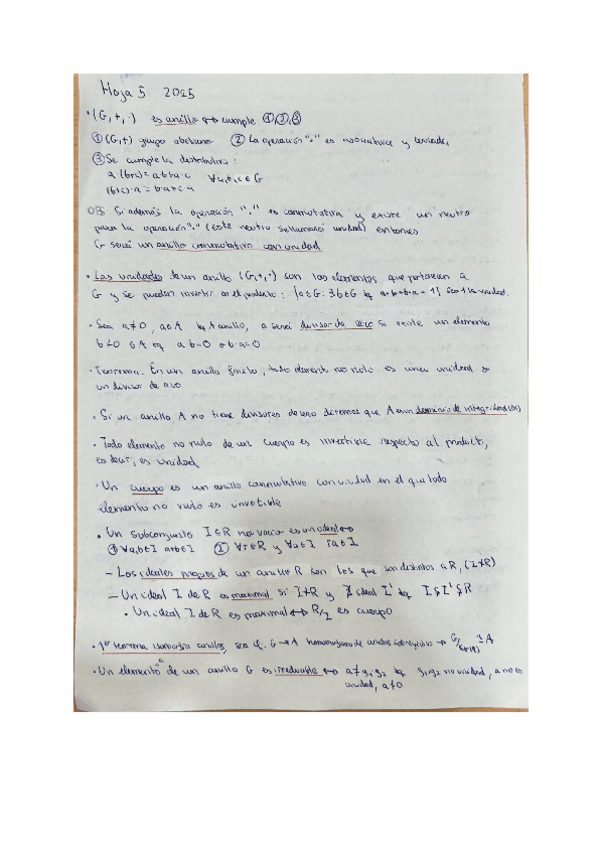 Hoja 5 2025
• (G,+,·) es anillo ↔ cumple ①,②,③
① (G,+) grupo abeliano ② La operación "·" es asociativa y cerrada
③ Se cumple la distributiva:
a·(b+c)=a·b+a·c ∀a,b,c∈G
(b+c)·a=b·a+c·a
OBS Si además la operación "·" es conmutativa y existe un neutro
para la operación "·" (este neutro se llamará unidad) entonces
G será un anillo conmutativo con unidad
• Las unidades de un anillo (G,+,·) son los elementos que pertenecen a
G y se pueden invertir en el producto: {a∈G: ∃b∈G tq a·b=b·a=1}, sea 1 la unidad.
• Sea a≠0, a∈A tq A anillo, a será divisor de cero si existe un elemento
b≠0 b∈A tq a·b=0 o b·a=0
• Teorema. En un anillo finito, todo elemento no nulo es una unidad o
un divisor de cero
• Si un anillo A no tiene divisores de cero diremos que A es un dominio de integridad
• Todo elemento no nulo de un cuerpo es invertible respecto al producto,
es decir, es unidad
• Un cuerpo es un anillo conmutativo con unidad en el que todo
elemento no nulo es invertible
• Un subconjunto I∈R no vacío es un ideal ↔
① ∀a,b∈I a+b∈I ② ∀r∈R y ∀a∈I ra∈I
– Los ideales propios de un anillo R son los que son distintos a R, (I≠R)
– Un ideal I de R es maximal si I≠R y ∄ ideal I' tq I⊊I'⊊R
• Un ideal I de R es maximal ↔ R/I es cuerpo
• 1er teorema isomorfía anillos, sea φ: G→A homomorfismo de anillos sobreyectivo → G/Ker(φ) ≅ A
• Un elemento a de un anillo G es irreducible ↔ a≠g₁g₂ tq g₁,g₂ no unidad, a no es
unidad, a≠0